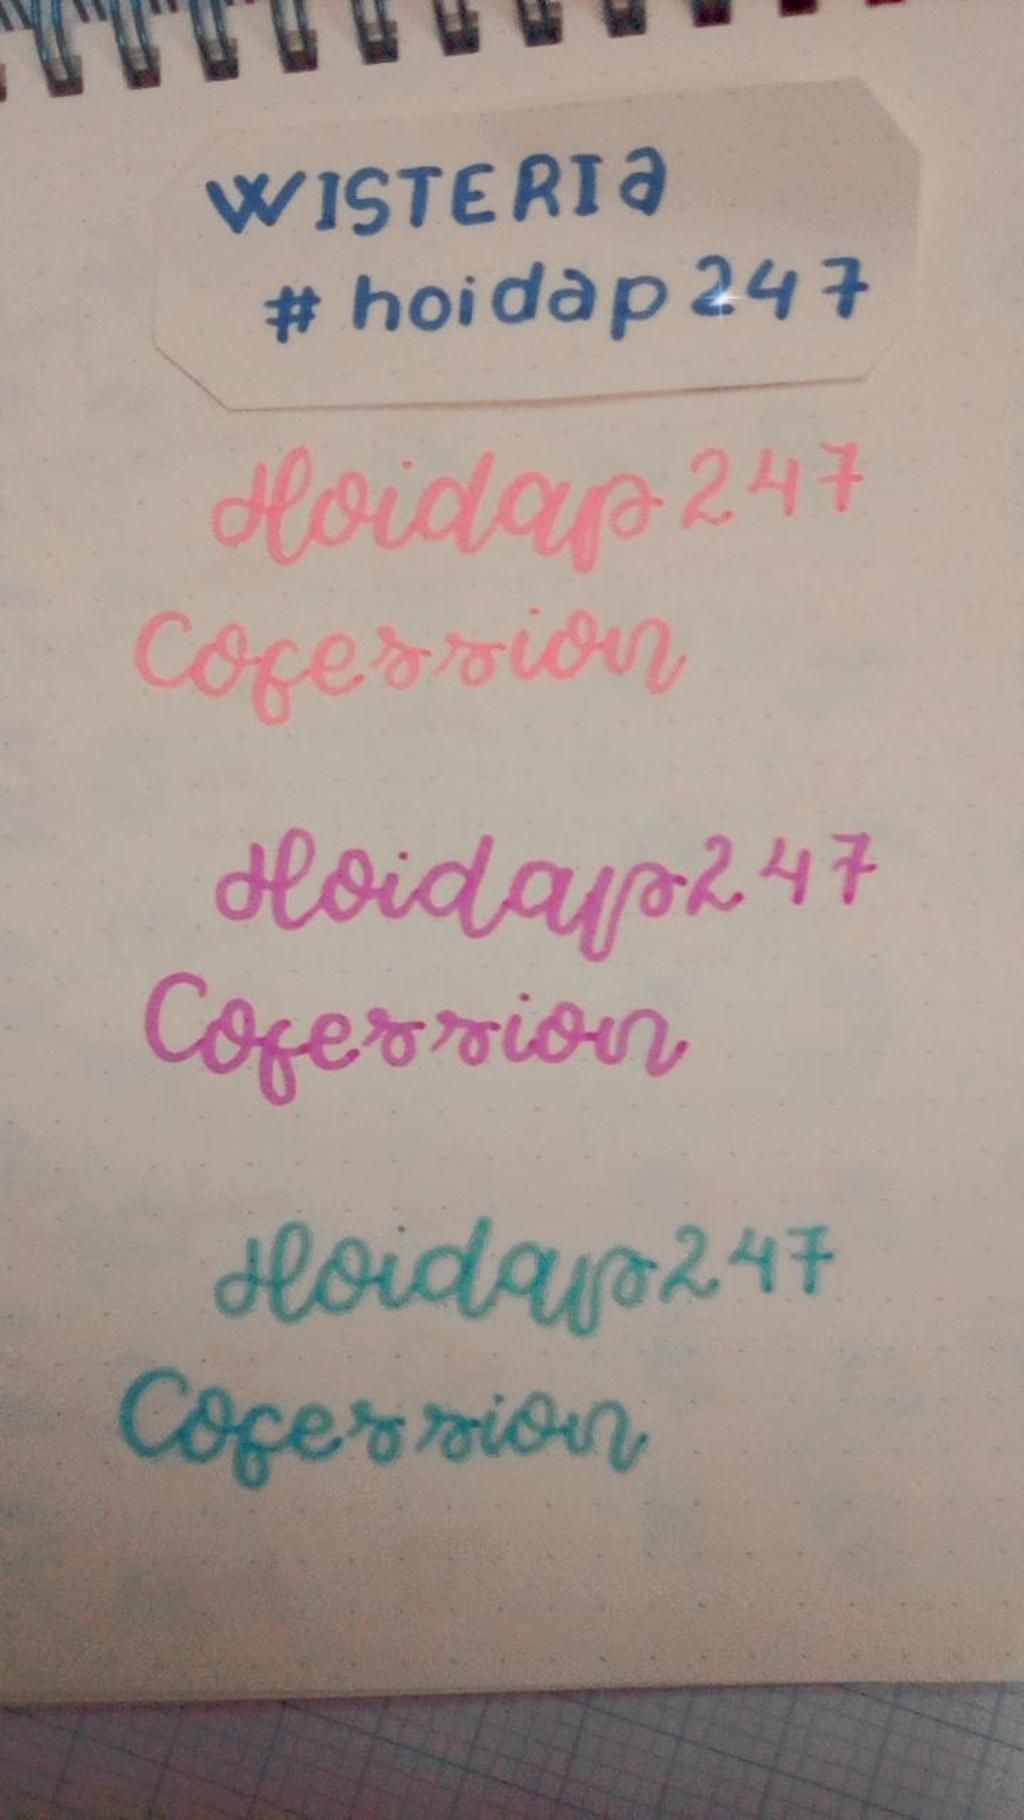 WISTERIa
# hoidap 247
Hoidap 247
Cofession
Hoidap247
Cofession
Hoidap247
Cofession